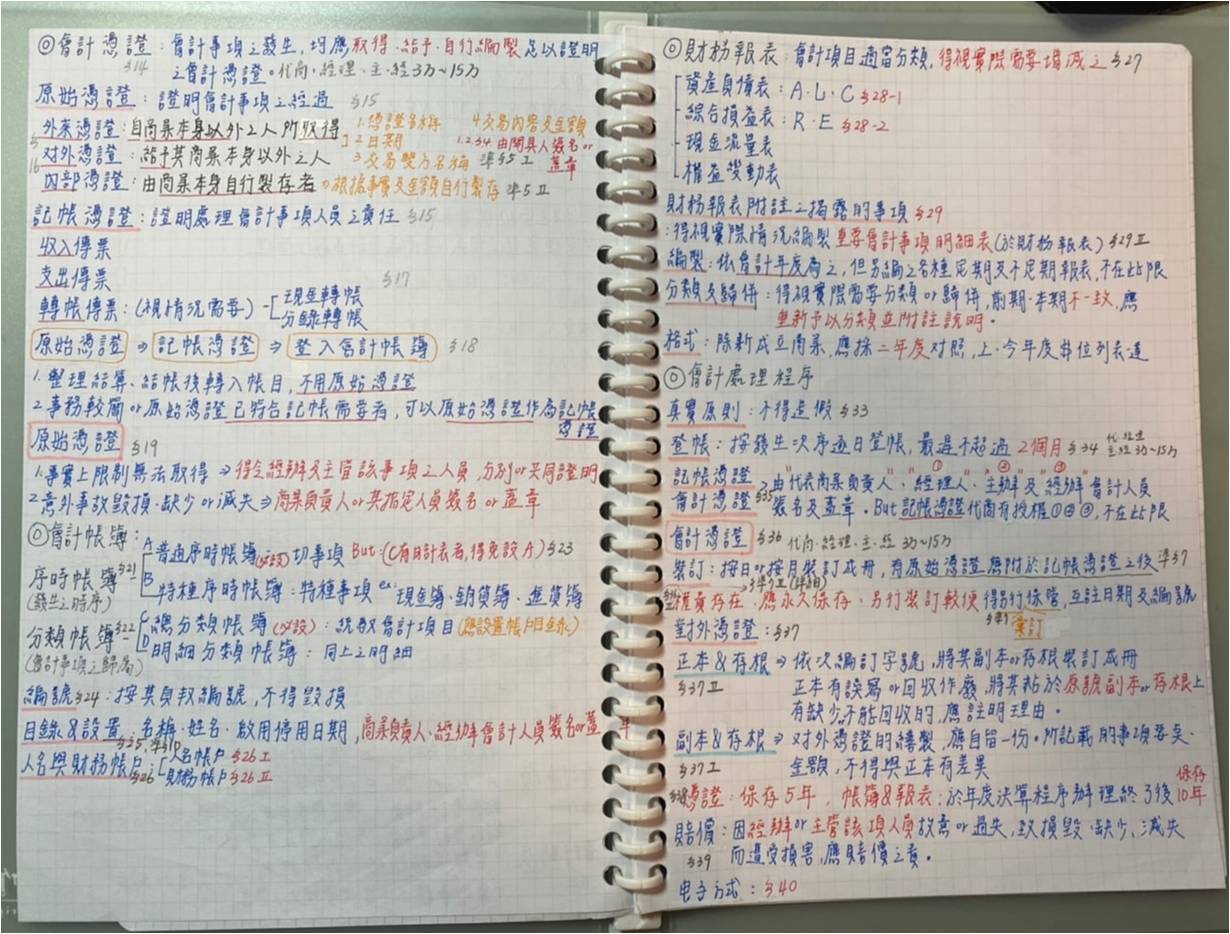 ◎會計憑證：會計事項之發生，均應取得、給予、自行編製足以證明
§14 之會計憑證。代商、經理、主、經3万~15万
原始憑證：證明會計事項之經過 §15
外來憑證：自商業本身以外之人所取得
對外憑證：給予其商業本身以外之人
內部憑證：由商業本身自行製存者。根據事實及金額自行製存 準5Ⅱ
§16
1.憑證名稱 4.交易內容及金額
2.日期 1.2.3.4.由開具人簽名or蓋章
3.交易雙方名稱 準§5Ⅰ
記帳憑證：證明處理會計事項人員之責任 §15
收入傳票
支出傳票 §17
轉帳傳票：(視情況需要)-[現金轉帳
分錄轉帳
原始憑證 ⇒ 記帳憑證 ⇒ 登入會計帳簿 §18
1.整理結算、結帳後轉入帳目，不用原始憑證
2.事務較簡or原始憑證已符合記帳需要者，可以原始憑證作為記帳
憑證
原始憑證 §19
1.事實上限制無法取得 ⇒得令經辦及主管該事項之人員，分別or共同證明
2.意外事故毀損、缺少or滅失⇒商業負責人or其指定人員簽名or蓋章
◎會計帳簿：
序時帳簿§21
(發生之時序)
A普通序時帳簿(必設)：一切事項 But:(C有日計表者,得免設A) §23
B特種序時帳簿：特種事項 ex:現金簿、銷貨簿、進貨簿
分類帳簿§22
(會計事項之歸屬)
C總分類帳簿(必設)：統馭會計項目(應設置帳戶目錄)
D明細分類帳簿：同上之明細
編號§24：按其頁數編號，不得毀損
目錄&設置：名稱、姓名、啟用停用日期，商業負責人、經辦會計人員簽名or蓋章
§25.準§10
人名與財務帳戶：[人名帳戶 §26Ⅰ
§26 財務帳戶 §26Ⅱ
◎財務報表：會計項目適當分類，得視實際需要增減之 §27
資產負債表：A、L、C §28-1
綜合損益表：R、E §28-2
現金流量表
權益變動表
財務報表附註：揭露的事項 §29
：得視實際情況編製重要會計事項明細表(於財務報表) §29Ⅱ
編製：依會計年度為之，但另編之各種定期及不定期報表，不在此限
分類及歸併：得視實際需要分類or歸併，前期、本期不一致，應
重新予以分類並附註說明。
格式：除新成立商業，應採二年度對照，上、今年度並位列表達
◎會計處理程序
真實原則：不得造假 §33
登帳：按發生次序逐日登帳，最遲不超過2個月 §34 代、經理
主、經3万~15万
記帳憑證
會計憑證 §35
由代表商業負責人、經理人①、主辦②及經辦③會計人員
簽名及蓋章。But記帳憑證代商有授權①②③，不在此限
會計憑證 §36 代商、經理、主、經 3万~15万
裝訂：按日or按月裝訂成冊，有原始憑證應附於記帳憑證之後 準§7
權責存在、應永久保存、另行裝訂較便得另行保管，互註日期及編號
對外憑證：§37
正本&存根 ⇒ 依次編訂字號，將其副本or存根裝訂成冊
§37Ⅱ 正本有誤寫or回收作廢，將其粘於原號副本or存根上
有缺少不能回收的，應註明理由。
副本&存根 ⇒ 對外憑證的繕製，應自留一份。所記載的事項要矣、
§37Ⅰ 金額，不得與正本有差異
§38憑證：保存5年，帳簿&報表：於年度決算程序辦理終了後保存10年
賠償：因經辦or主管該項人員故意or過失，致損毀、缺少、滅失
§39 而遭受損害，應賠償之責。
电子方式：§40